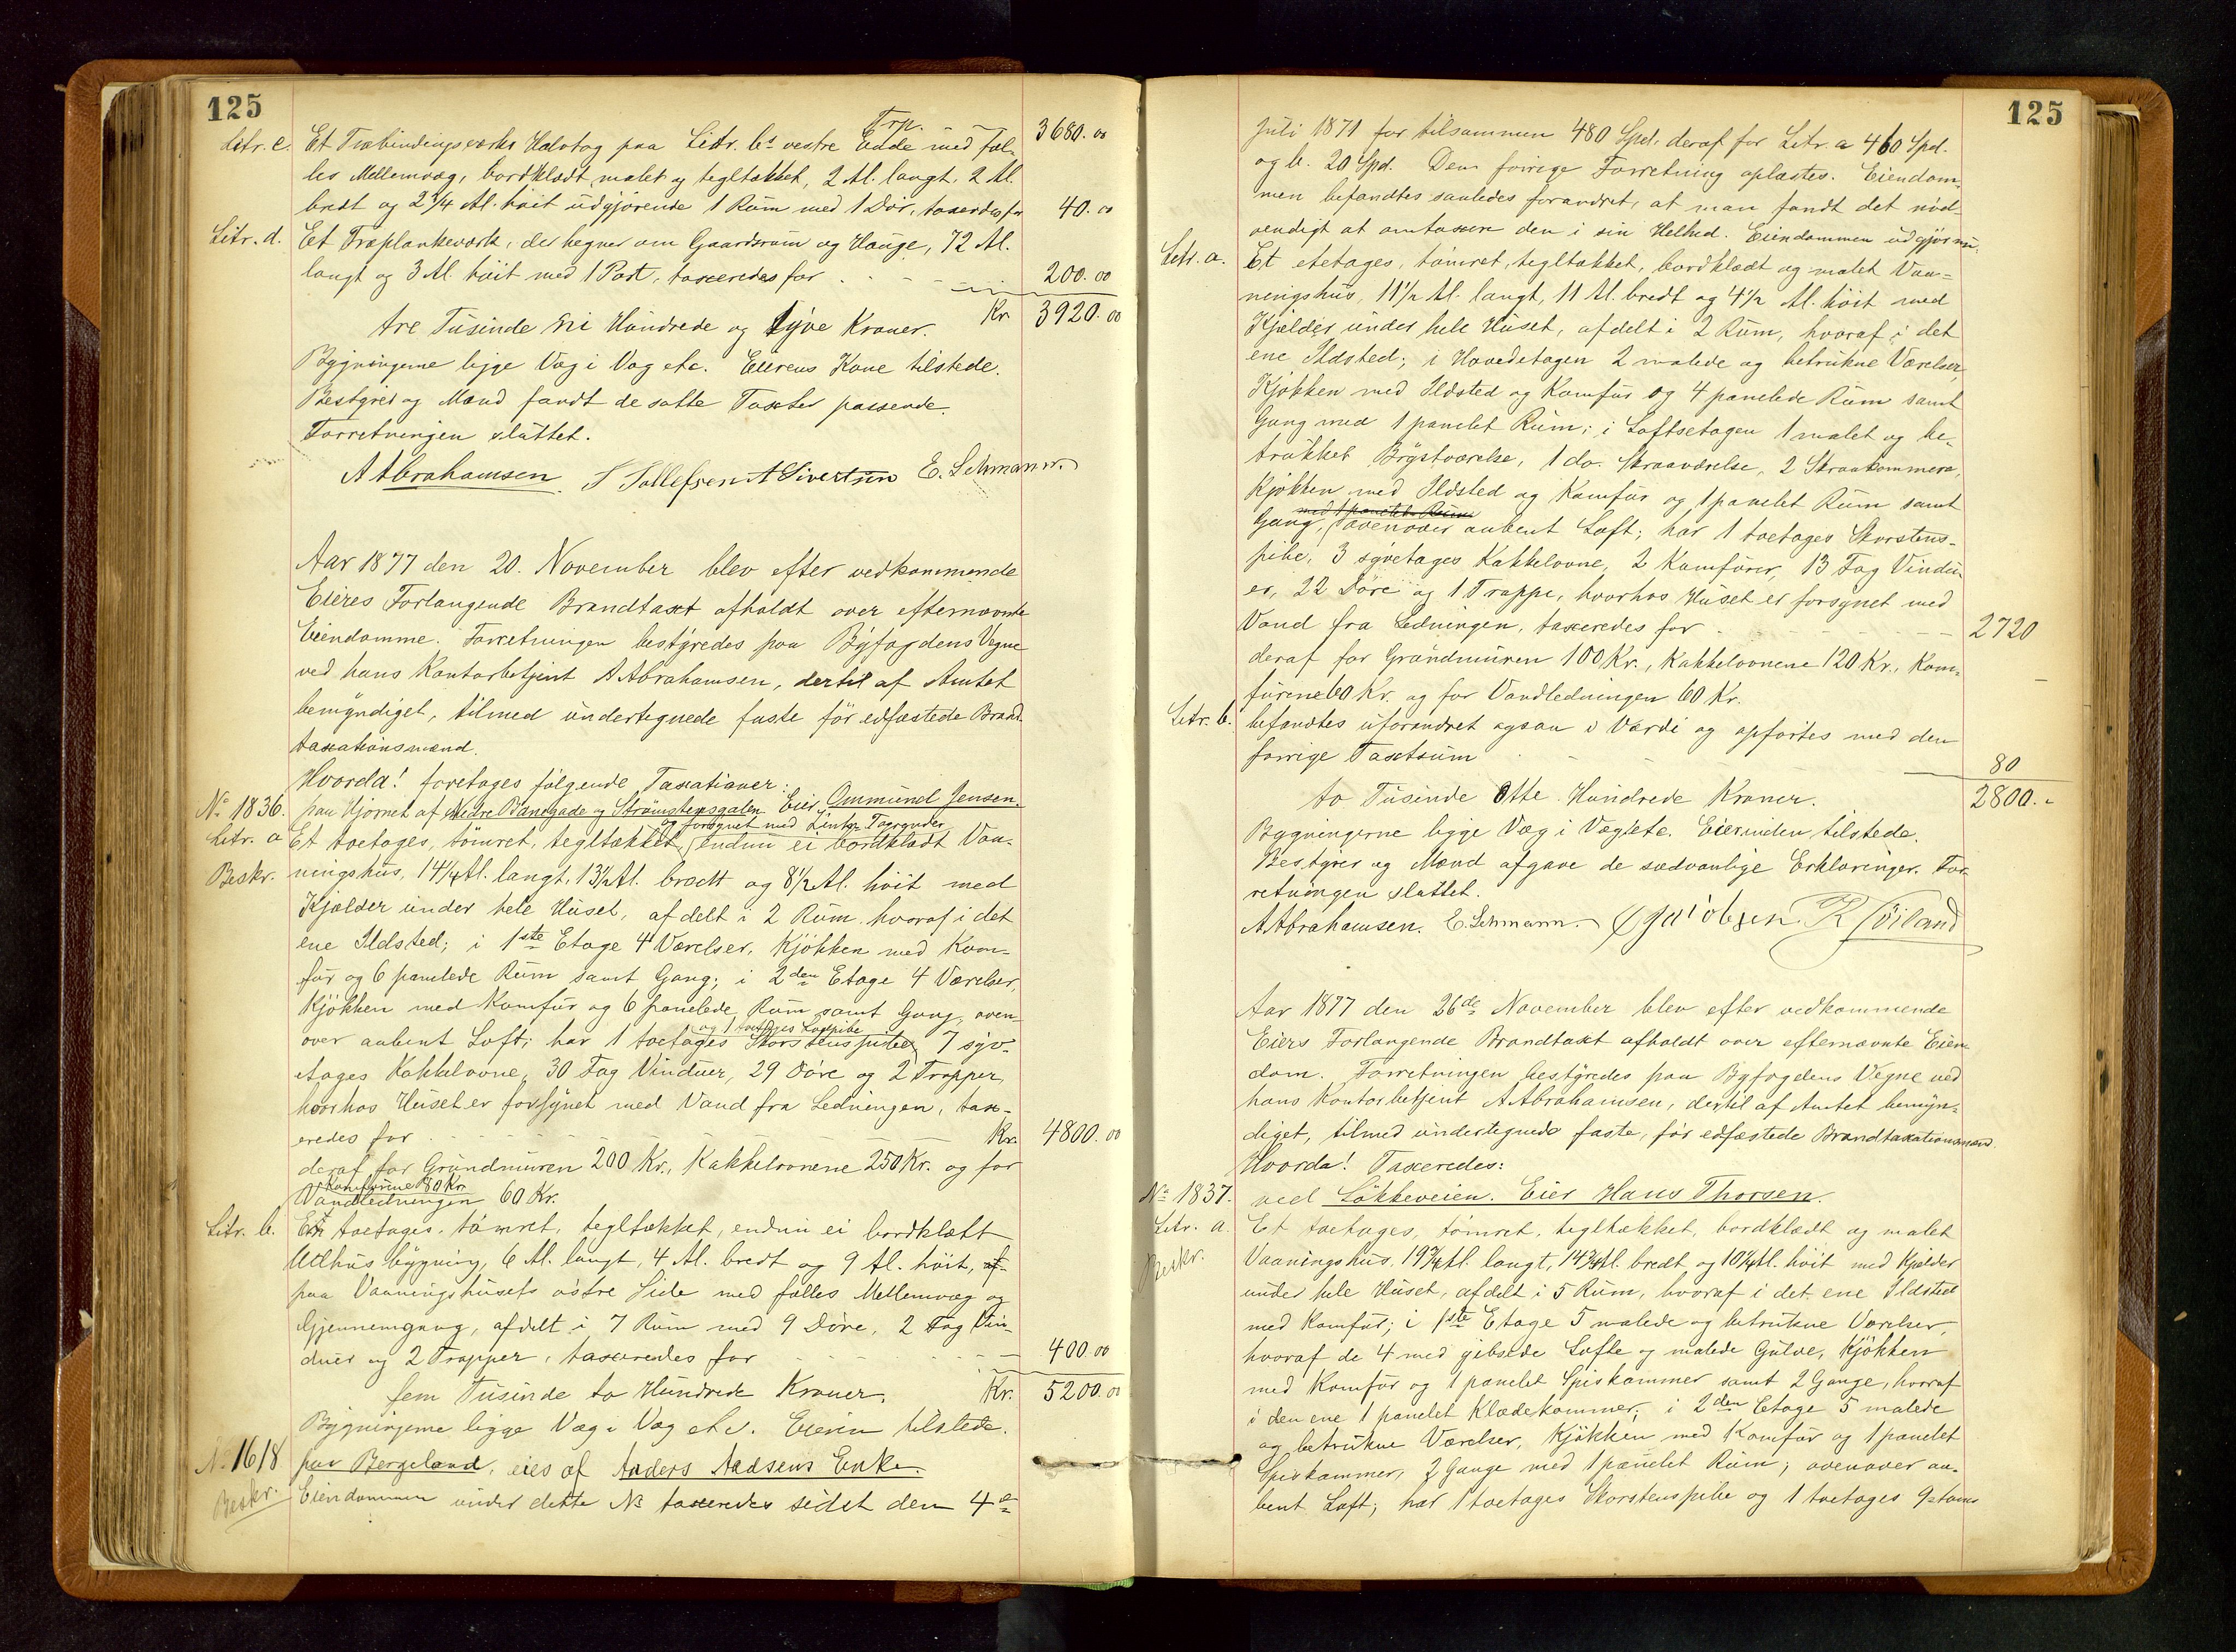 125
Trp. 3680.00
Litr. c. Et Træbindingsværks Halvtag paa Litr. bs vestre Ende med fæl-
les Mellemvæg, bordklædt, malet og tegltækket, 2 Al. langt, 2 Al.
bredt og 2 3/4 Al. høit udgjørende 1 Rum med 1 Dør, taxeredes for 40.00
Litr. d. Et Træplankeværk, der hegner om Gaardsrum og Hauge, 72 Al.
langt og 3 Al. høit med 1 Port, taxeredes for 200.00
tre Tusinde Ni Hundrede og tyve Kroner. Kr. 3920.00
Bygningerne ligge Væg i Væg etc. Eierens Kone tilstede.
Bestyrer og Mænd fandt de satte Taxter passende.
Forretningen sluttet.
A Abrahamsen. T Tollefsen A Sivertsen E. Lehmann.
Aar 1877 den 20. November blev efter vedkommende
Eieres Forlangende Brandtaxt afholdt over efternævnte
Eiendomme. Forretningen bestyredes paa Byfogdens Vegne
ved hans Kontorbetjent A Abrahamsen, dertil af Amtet
bemyndiget, tilmed undertegnede faste før edfæstede Brand-
taxationsmænd.
Hvorda! foretages følgende Taxationer:
No 1836. paa Hjørnet af Nedre Banegade og Strømstensgaten Eier Ommund Jensen.
og forsynet med Zinks Tagrender
Litr. a Et toetages, tømret, tegltækket, endnu ei bordklædt Vaa-
Beskr. ningshus, 14 1/4 Al. langt, 13 1/2 Al. bredt og 8 1/2 Al. høit med
Kjælder under hele Huset, afdelt i 2 Rum hvoraf i det
ene Ildsted; i 1ste Etage 4 Værelser, Kjøkken med Kom-
fur og 6 panelede Rum samt Gang; i 2den Etage 4 Værelser,
Kjøkken med Komfur og 6 panelede Rum samt Gang, oven-
og 1 toetages
over aabent Loft; har 1 toetages Skorstenspibe, 7 syv-
etages Kakkelovne, 30 Fag Vinduer, 29 Døre og 2 Trapper,
hvorhos Huset er forsynet med Vand fra Ledningen, tax-
eredes for Kr. 4800.00
deraf for Grundmuren 200 Kr., Kakkelovnene 250 Kr. og for
Komfurene 80 Kr.
Vandledningen 60 Kr.
Litr. b. Et toetages, tømret, tegltækket, endnu ei bordklædt
Udhusbygning, 6 Al. langt, 4 Al. bredt og 9 Al. høit,
paa Vaaningshusets østre Side med fælles Mellemvæg og
Gjennemgang, afdelt i 7 Rum med 9 Døre, 2 Fag Vin-
duer og 2 Trapper, taxeredes for 400.00
fem Tusinde to Hundrede Kroner. Kr. 5200.00
Bygningerne ligge Væg i Væg etc. Eieren tilstede.
No 1618 paa Bergeland, eies af Anders Aadsens Enke.
Beskr. Eiendommen under dette No taxeredes sidst den 4de
125
Juli 1871 for tilsammen 480 Spd. deraf for Litr. a 460 Spd.
og b. 20 Spd. Den forrige Forretning oplæstes. Eiendom-
men befandtes saaledes forandret, at man fandt det nød-
vendigt at omtaxere den i sin Helhed. Eiendommen udgjør nu:
Litr. a. Et etetages, tømret, tegltækket, bordklædt og malet Vaa-
ningshus, 11 1/2 Al. langt, 11 Al. bredt og 4 1/2 Al. høit med
Kjælder under hele Huset, afdelt i 2 Rum, hvoraf i det
ene Ildsted; i Hovedetagen 2 malede og betrukne Værelser,
Kjøkken med Ildsted og Komfur og 4 panelede Rum samt
Gang med 1 panelet Rum; i Loftsetagen 1 malet og be-
trukket Brystværelse, 1 do. Skraaværelse, 2 Skraakammere,
Kjøkken med Ildsted og Komfur og 1 panelet Rum samt
med 1 panelet Rum
Gang, ovenover aabent Loft; har 1 toetages Skorstens-
pibe, 3 syvetages Kakkelovne, 2 Komfurer, 13 Fag Vindu-
er, 22 Døre og 1 Trappe, hvorhos Huset er forsynet med
Vand fra Ledningen, taxeredes for 2720
deraf for Grundmuren 100 Kr., Kakkelovnene 120 Kr., Kom-
furene 60 Kr. og for Vandledningen 60 Kr.
Litr. b. befandtes uforandret ogsaa i Værdi og opførtes med den
forrige Taxtsum 80
to Tusinde Otte Hundrede Kroner. 2800.-
Bygningerne ligge Væg i Væg etc. Eierinden tilstede.
Bestyrer og Mænd afgave de sædvanlige Erklæringer. For-
retningen sluttet.
A Abrahamsen. E. Lehmann. Jacobsen.
Aar 1877 den 26de November blev efter vedkommende
Eiers Forlangende Brandtaxt afholdt over efternævnte Eien-
dom. Forretningen bestyredes paa Byfogdens Vegne ved
hans Kontorbetjent A Abrahamsen, dertil af Amtet bemyn-
diget, tilmed undertegnede faste, før edfæstede Brandtaxationsmænd.
Hvorda! Taxeredes:
No 1837. ved Løkkeveien. Eier Hans Thorsen.
Litr. a. Et toetages, tømret, tegltækket, bordklædt og malet
Beskr. Vaaningshus, 19 3/4 Al. langt, 14 3/4 Al. bredt og 10 1/4 Al. høit med Kjælder
under hele Huset, afdelt i 5 Rum, hvoraf i det ene Ildsted
med Komfur; i 1ste Etage 5 malede og betrukne Værelser,
hvoraf de 4 med gibsede Lofte og malede Gulve, Kjøkken
med Komfur og 1 panelet Spiskammer samt 2 Gange, hvoraf
i den ene 1 panelet Klædekammer; i 2den Etage 5 malede
og betrukne Værelser, Kjøkken med Komfur og 1 panelet
Spiskammer, 2 Gange med 1 panelet Rum; ovenover aa-
bent Loft; har 1 toetages Skorstenspibe og 1 toetages 9 toms